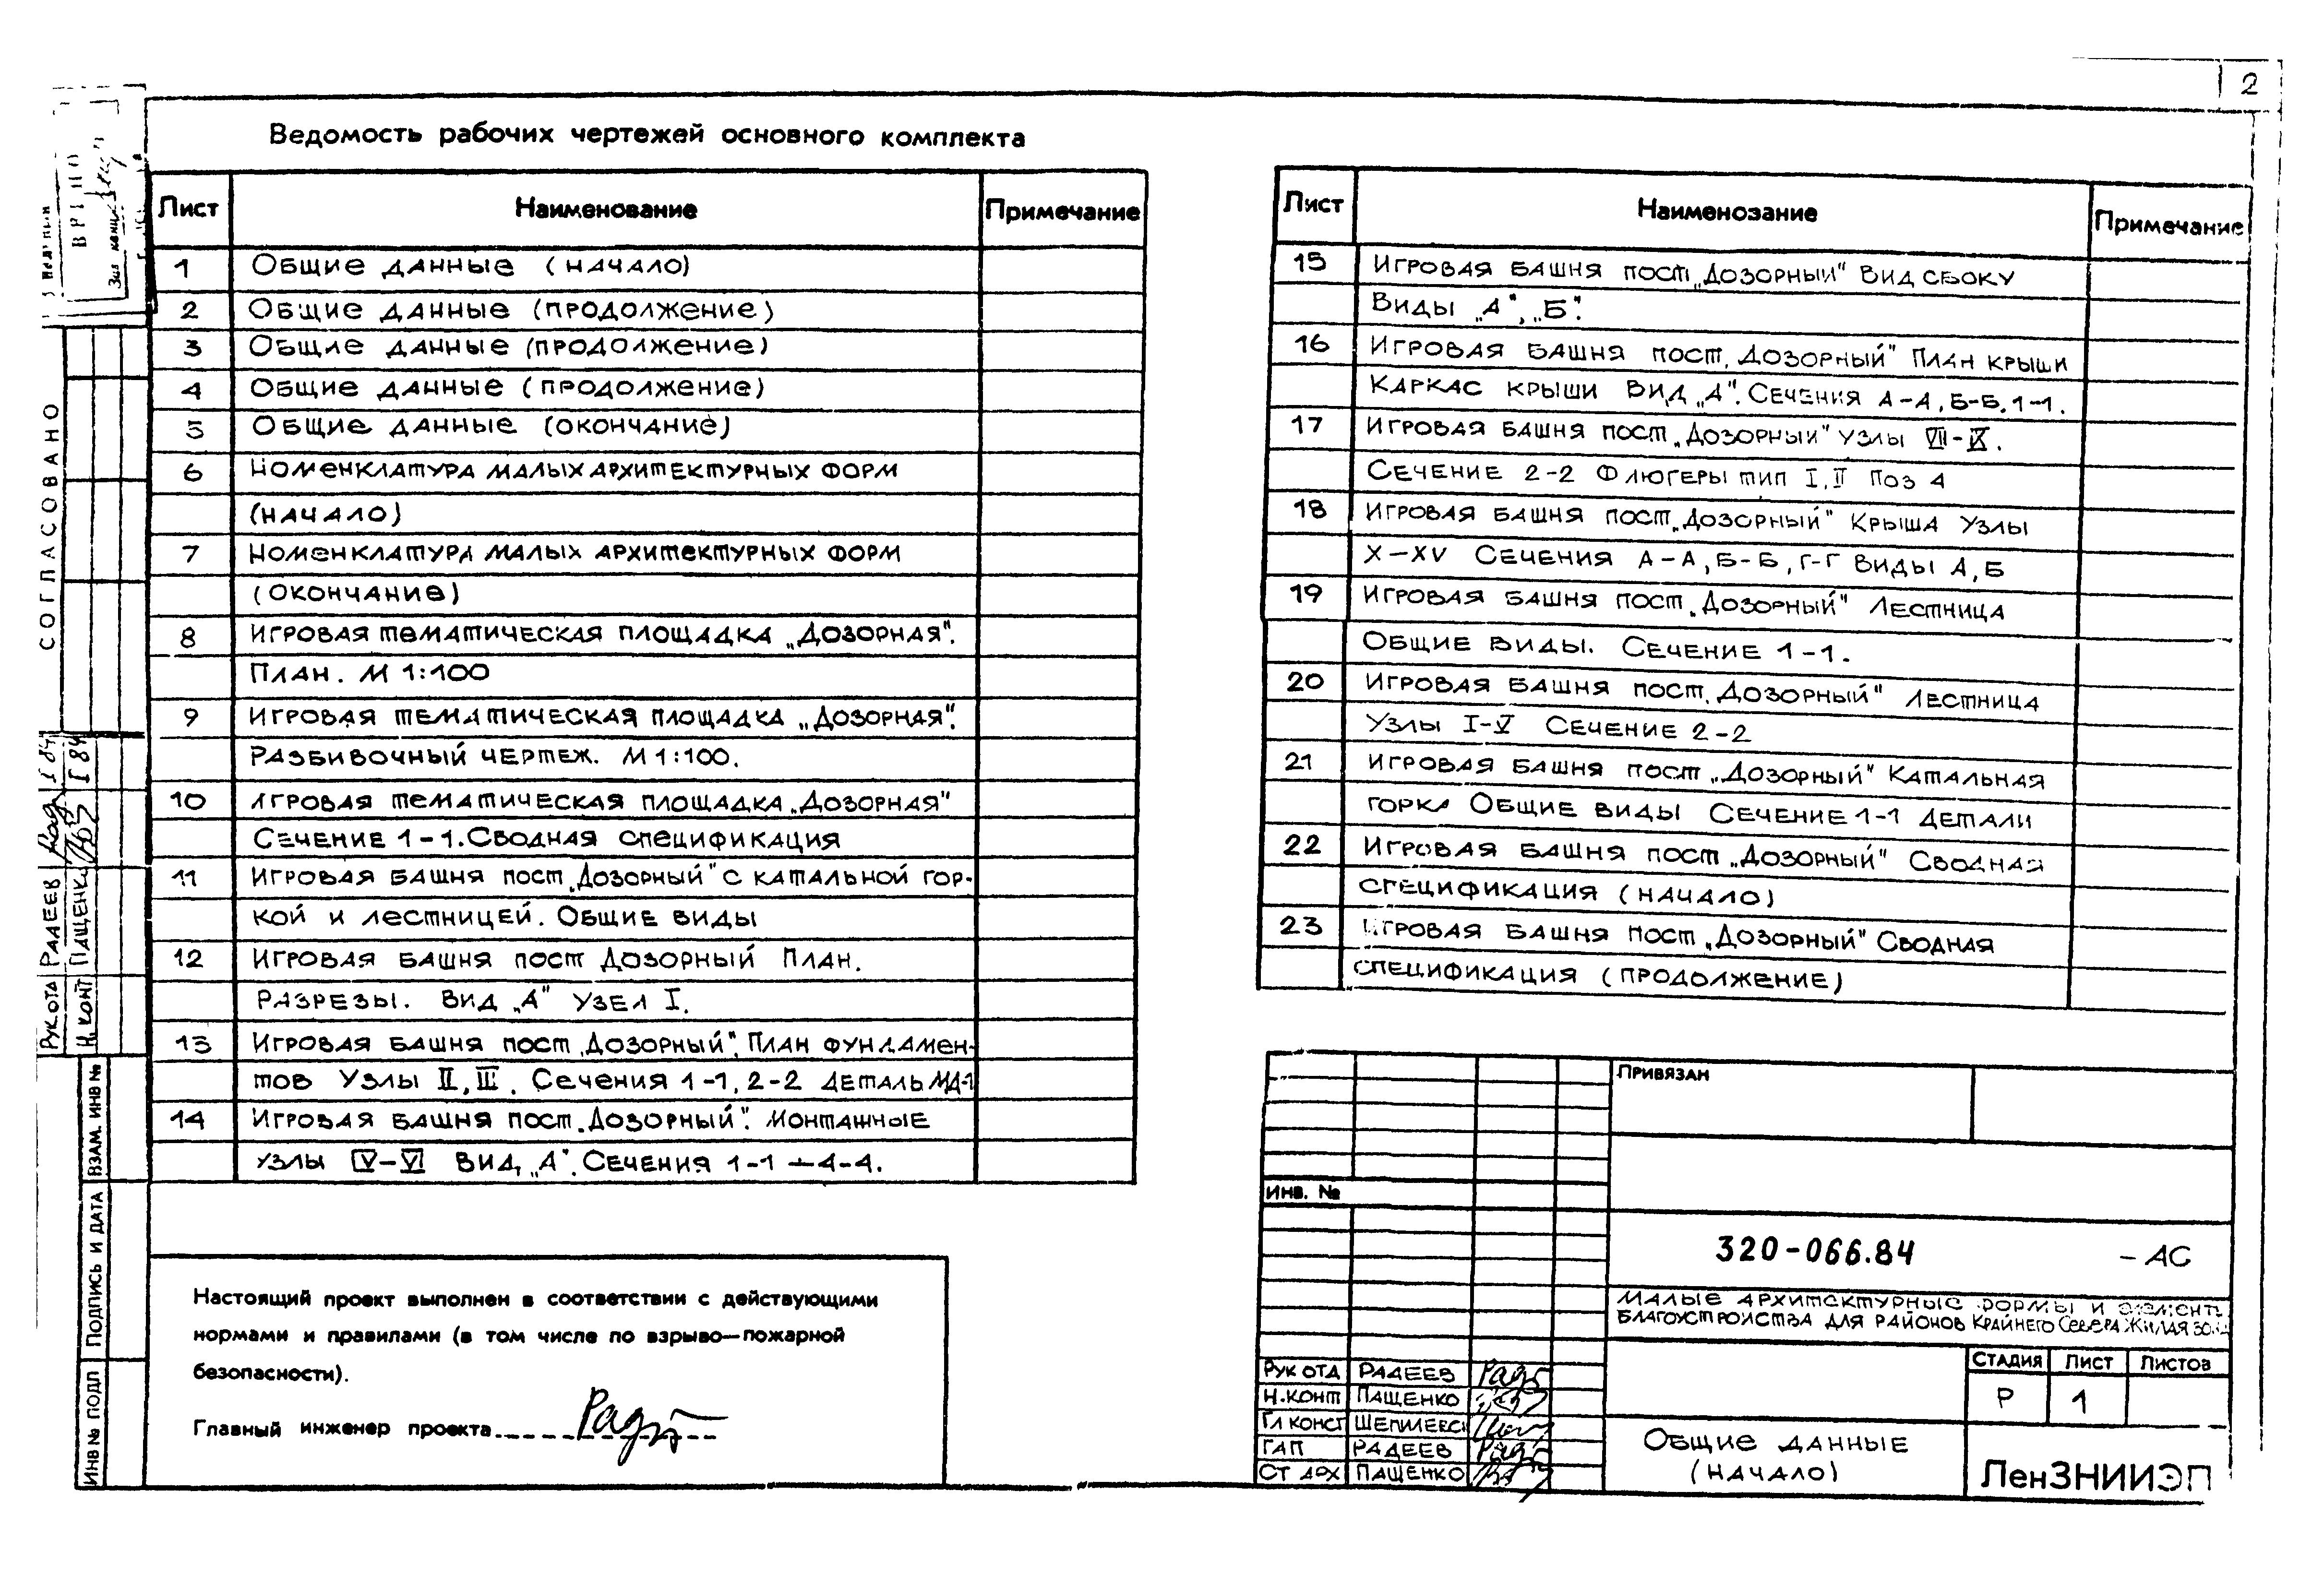 2
Ведомость рабочих чертежей основного комплекта
Лист Наименование Примечание
1 Общие данные (начало)
2 Общие данные (продолжение)
3 Общие данные (продолжение)
4 Общие данные (продолжение)
5 Общие данные (окончание)
6 Номенклатура малых архитектурных форм
(начало)
7 Номенклатура малых архитектурных форм
(окончание)
8 Игровая тематическая площадка „Дозорная".
План. М 1:100
9 Игровая тематическая площадка „Дозорная".
Разбивочный чертеж. М 1:100.
10 Игровая тематическая площадка „Дозорная"
Сечение 1-1. Сводная спецификация
11 Игровая башня пост „Дозорный" с катальной гор-
кой и лестницей. Общие виды
12 Игровая башня пост Дозорный План.
Разрезы. Вид „А" Узел I.
13 Игровая башня пост „Дозорный". План фундамен-
тов Узлы II, III. Сечения 1-1, 2-2 Деталь МД-1
14 Игровая башня пост „Дозорный". Монтажные
узлы IV-VI Вид „А". Сечения 1-1 ÷ 4-4.
Лист Наименование Примечание
15 Игровая башня пост „Дозорный" Вид сбоку
Виды „А", „Б".
16 Игровая башня пост „Дозорный" План крыши
Каркас крыши Вид „А". Сечения А-А, Б-Б, 1-1.
17 Игровая башня пост „Дозорный" Узлы VII-IX.
Сечение 2-2 Флюгеры тип I, II Поз 4
18 Игровая башня пост „Дозорный" Крыша Узлы
X-XV Сечения А-А, Б-Б, Г-Г Виды А, Б
19 Игровая башня пост „Дозорный" Лестница
Общие виды. Сечение 1-1.
20 Игровая башня пост „Дозорный" Лестница
Узлы I-V Сечение 2-2
21 Игровая башня пост „Дозорный" Катальная
горка Общие виды Сечение 1-1 Детали
22 Игровая башня пост „Дозорный" Сводная
спецификация (начало)
23 Игровая башня пост „Дозорный" Сводная
спецификация (продолжение)
Настоящий проект выполнен в соответствии с действующими
нормами и правилами (в том числе по взрыво—пожарной
безопасности).
Главный инженер проекта
Привязан
Инв. №
320-066.84 - АС
Малые архитектурные формы и элементы
благоустройства для районов Крайнего Севера Жилая зона
Стадия Лист Листов
Р 1
Рук отд Радеев
Н.конт Пащенко
Гл конст Шепилевс
ГАП Радеев
Ст арх Пащенко
Общие данные
(начало)
ЛенЗНИИЭП
СОГЛАСОВАНО
Рук ота Радеев I 84
Н. конт Пащенк I 84
Взам. инв №
Подпись и дата
Инв № подл